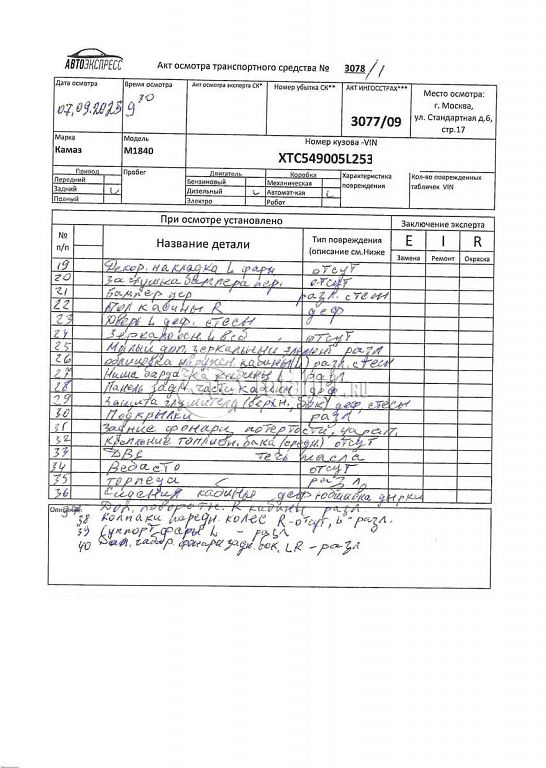 АВТОЭКСПРЕСС
Акт осмотра транспортного средства № 3078/1
Дата осмотра
07.09.2023
Время осмотра
9 30
Акт осмотра эксперта СК*
Номер убытка СК**
АКТ ИНГОССТРАХ***
3077/09
Место осмотра:
г. Москва,
ул. Стандартная д.6,
стр.17
Марка
Камаз
Модель
M1840
Номер кузова -VIN
XTC549005L253
Привод
Передний
Задний
Полный
Пробег
Двигатель
Бензиновый
Дизельный
Электро
Коробка
Механическая
Автомат-кая
Робот
Характеристика
повреждения
Кол-во поврежденных
табличек VIN
При осмотре установлено
Заключение эксперта
№
п/п
Название детали
Тип повреждения
(описание см.Ниже
E I R
Замена Ремонт Окраска
19 Декор. накладка L фары отсут
20 Заглушка бампера пер. отсут
21 Бампер пер разл. стесы
22 Пол кабины R деф
23 Дверь L деф. стесы
24 Зеркало осн. L в сб отсут
25 Малый доп. зеркальный элемент разл
26 облицовка наружн. кабины L разл, стесы
27 Ниша кабины разл
28 Панель задн. части кабины деф
29 Защита глушителя (верхн, бок) деф, стесы
30 Подкрылки разл
31 Задние фонари потертости, царап.
32 крепление топливн. бака (средн) отсут
33 ДВС течь масла
34 Вебасто отсут
35 торпеда разл,
36 Сидения кабины деф обшивка дырки
Описание:
37 Доп. поворотн. R кабины разл
38 Колпаки передн. колес R-отсут, L-разл.
39 Суппорт фары L - разл
40 габар. фонари задн. бок, LR - разл